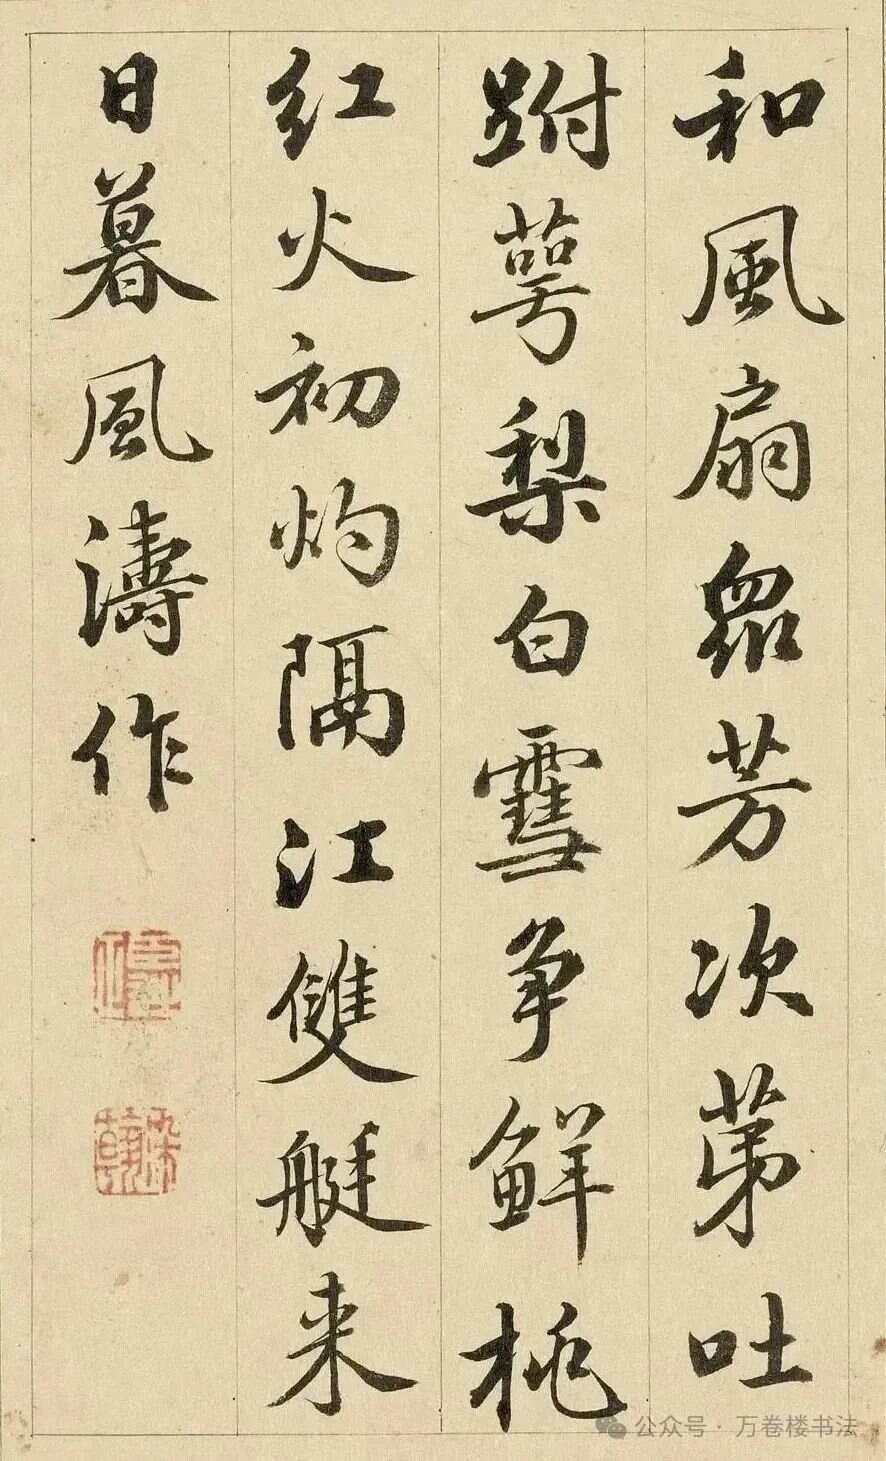 和風扇眾芳次苐吐
跗萼梨白雪争鮮桃
红火初灼隔江雙艇来
日暮風濤作
公众号 · 万卷楼书法